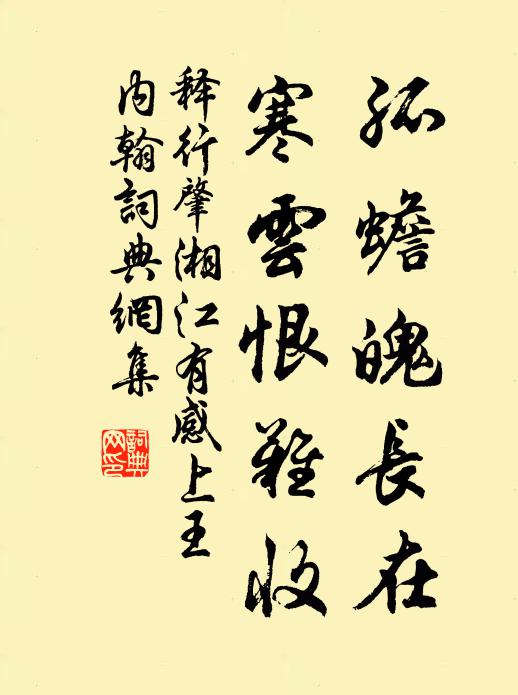 孤蟾魄長在
寒雲恨難收
释行肇湘江有感上王
内翰詞典網集
詞典
网印